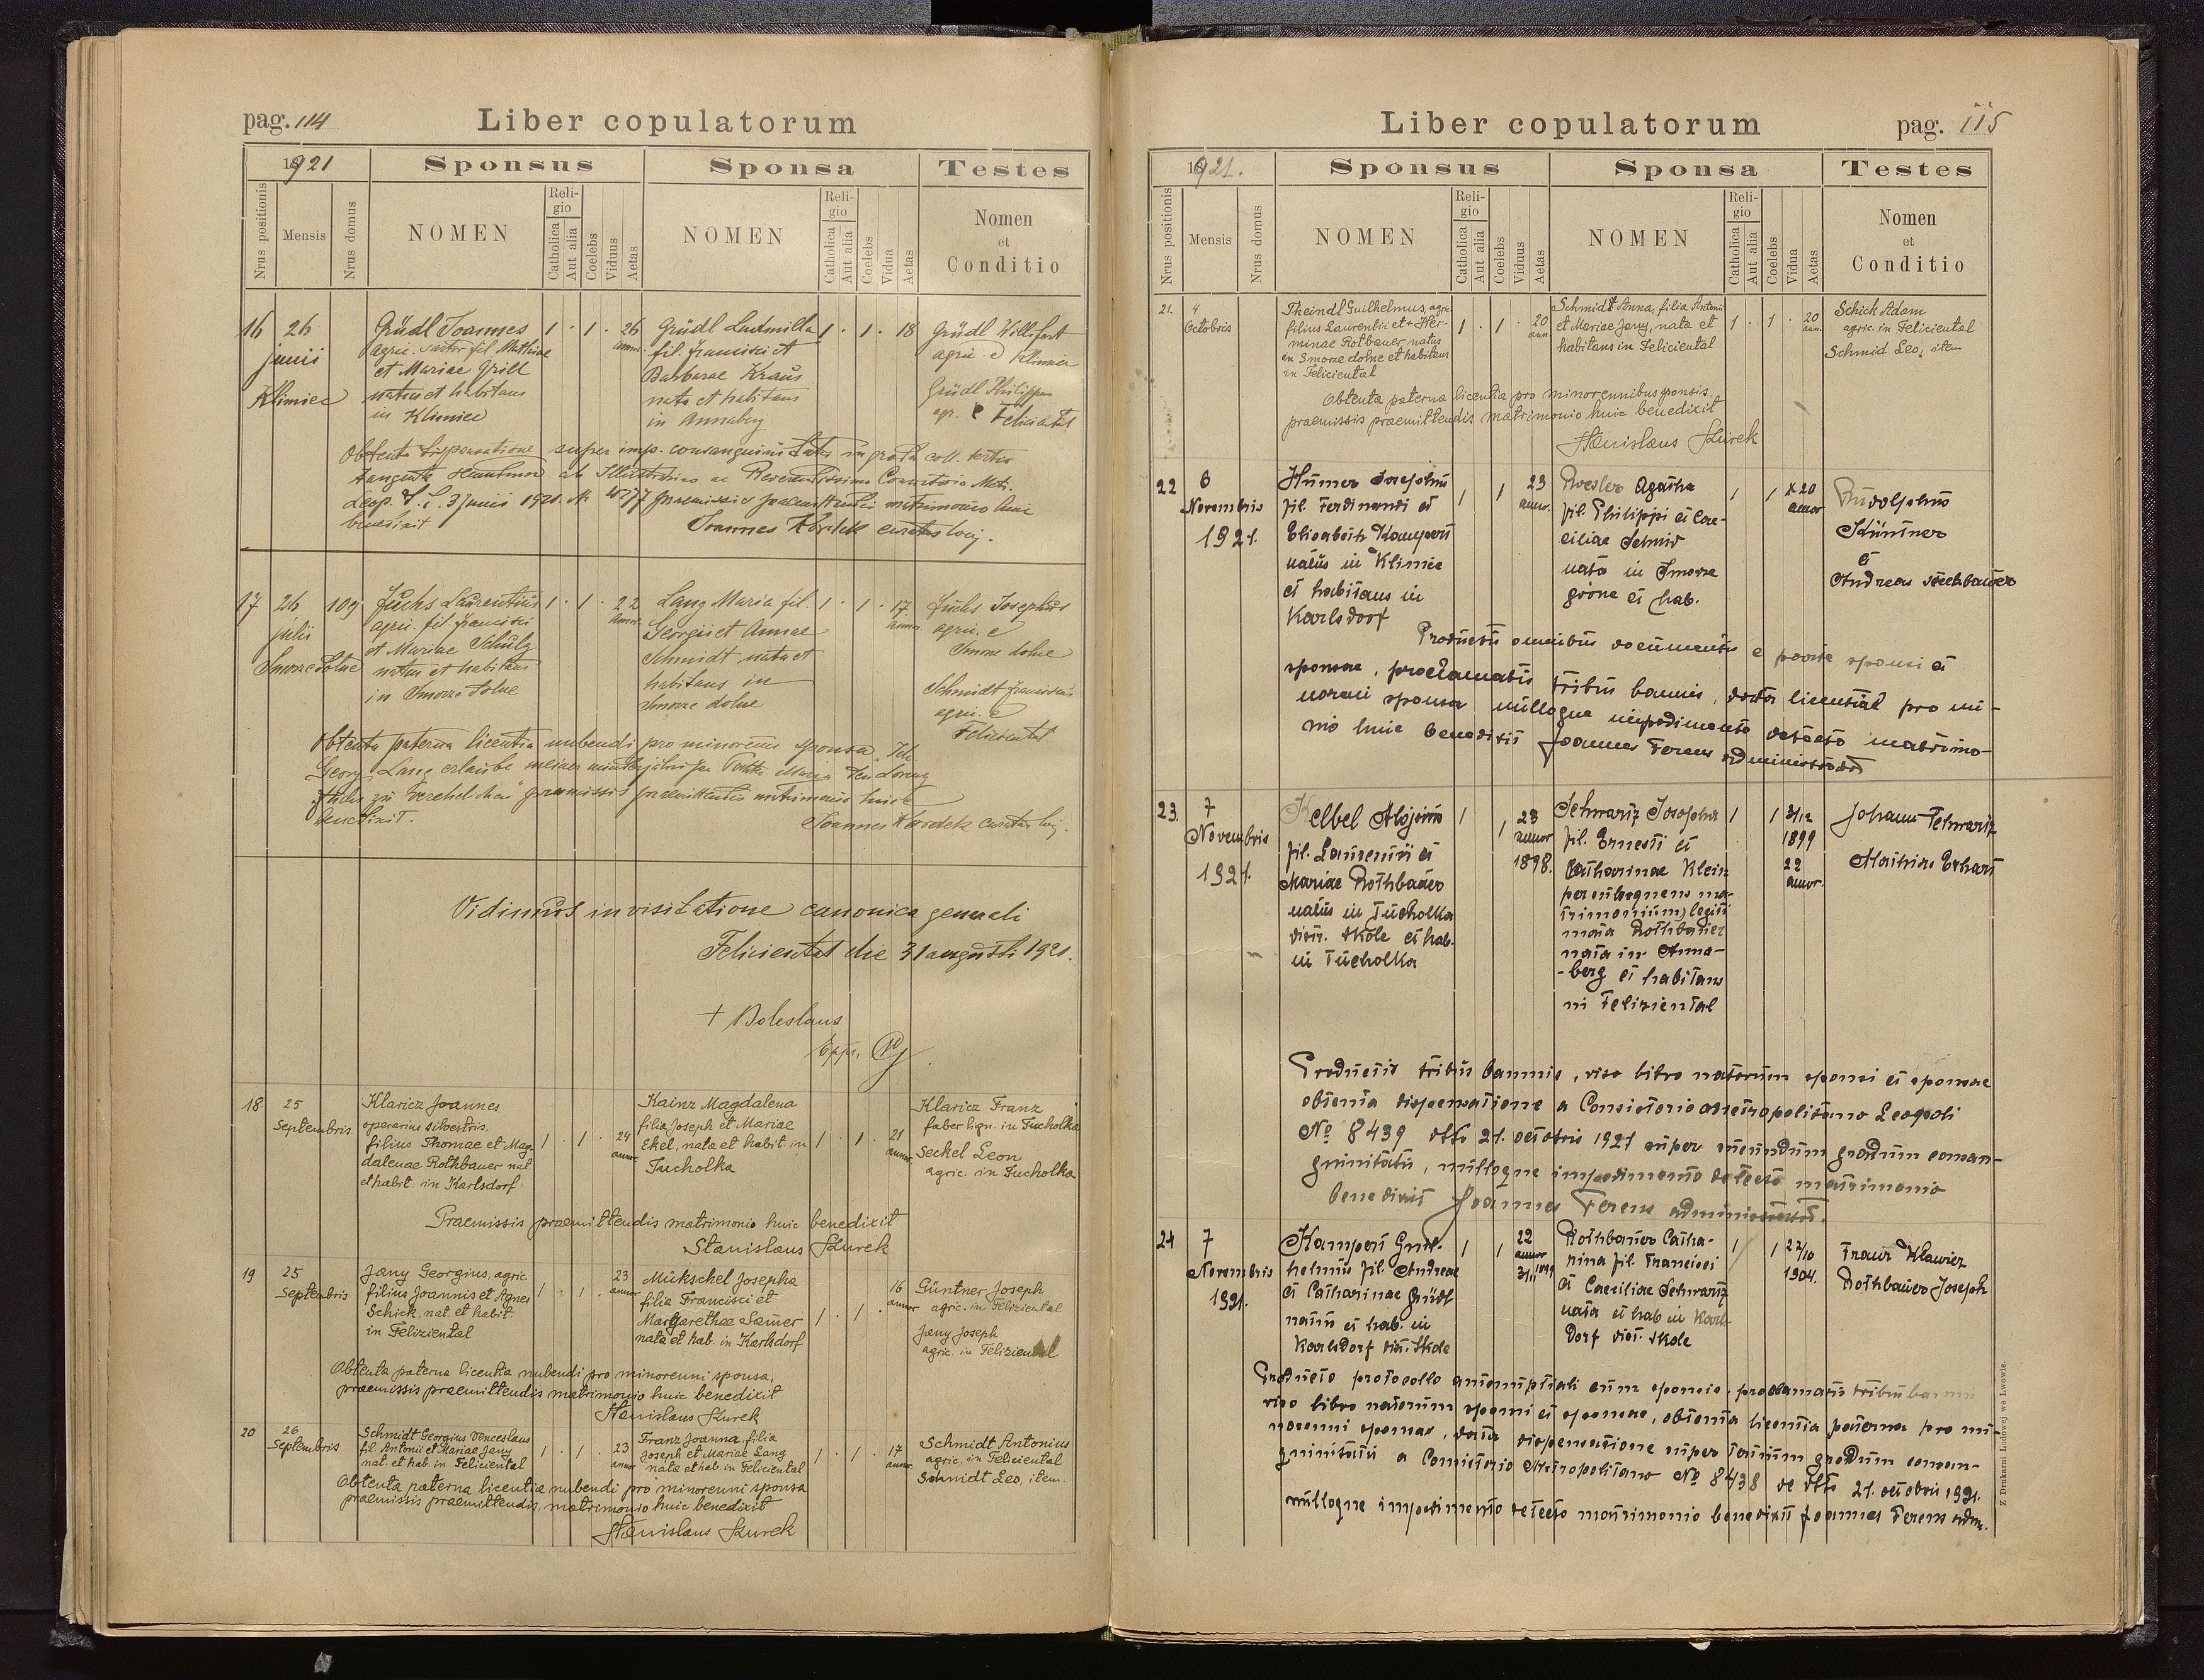 pag. 114
Liber copulatorum
1921
Sponsus
Sponsa
Testes
Nrus positionis
Mensis
Nrus domus
NOMEN
Religio
Catholica
Aut alia
Coelebs
Viduus
Aetas
NOMEN
Religio
Catholica
Aut alia
Coelebs
Vidua
Aetas
Nomen
et
Conditio
16
26
junii
Klimiec
Grüdl Joannes
agric. sartor fil Mathiae
et Mariae Grill
natus et habitans
in Klimiec
1 · 1 · 26
annor.
Grüdl Ludmilla
fil. Francisci et
Barbarae Kraus
nata et habitans
in Annaberg
1 · 1 · 18
Grüdl Willifort
agric. e Klimiec
Grüdl Philippus
agr. e Feliciental
Obtenta dispensatione super imp. consanguinitatis in gradu coll. tertio
tangente secundum ab Illustrissimo ac Reverendissimo Consistorio Metr.
Leop. r. l. 3 Junii 1921. N. praemissis praemittendis matrimonio huic
benedixit
Joannes curatus loci.
17
26
julii
Smorze dolne
109
Fuchs Laurentius
agric. fil. Francisci
et Mariae Schulz
natus et habitans
in Smorze dolne
1 · 1 · 22
annor.
Lang Maria fil.
Georgii et Annae
Schmidt nata et
habitans in
Smorze dolne
1 · 1 · 17
annor.
Fuchs Josephus
agric. e
Smorze dolne
Schmidt Franciscus
agric. e
Feliciental
Obtenta paterna licentia nubendi pro minorenni sponsa „Ich
Georg Lang erlaube meiner minderjährigen Tochter Maria den Lorenz
Fuchs zu verehelichen" praemissis praemittendis matrimonio huic
benedixit.
Joannes curatus loci.
Vidimus in visitatione canonica generali
Feliciental die 31 augusti 1921.
+ Boleslaus
Eppus
18
25
Septembris
Klaricz Joannes
operarius silvestris.
filius Thomae et Mag-
dalenae Rothbauer nat.
et habit. in Karlsdorf
1 · 1 · 24
annor.
Kainz Magdalena
filia Joseph et Mariae
Ekel, nata et habit in
Tucholka
1 · 1 · 21
annor.
Klaricz Franz
faber lign. in Tucholka
Seckel Leon
agric. in Tucholka
Praemissis praemittendis matrimonio huic benedixit
Stanislaus Szurek
19
25
Septembris
Jany Georgius, agric.
filius Joannis et Agnes
Schick, nat. et habit.
in Feliziental
1 · 1 · 23
annor
Mükschel Josepha
filia Francisci et
Margarethae Samer
nata et hab. in Karlsdorf
1 · 1 · 16
annor
Güntner Joseph
agric. in Feliziental
Jany Joseph
agric. in Feliziental
Obtenta paterna licentia nubendi pro minorenni sponsa,
praemissis praemittendis matrimonio huic benedixit
Stanislaus Szurek
20
26
Septembris
Schmidt Georgius Venceslaus
fil. Antonii et Mariae Jany
nat. et hab. in Feliciental
1 · 1 · 23
annor
Franz Joanna, filia
Joseph et Mariae Lang
nata et hab. in Feliciental
1 · 1 · 17
annor.
Schmidt Antonius
agric. in Feliciental
Schmidt Leo, item.
Obtenta paterna licentia nubendi pro minorenni sponsa
praemissis praemittendis, matrimonio huic benedixit
Stanislaus Szurek
Liber copulatorum
pag. 115
1921.
Sponsus
Sponsa
Testes
Nrus positionis
Mensis
Nrus domus
NOMEN
Religio
Catholica
Aut alia
Coelebs
Viduus
Aetas
NOMEN
Religio
Catholica
Aut alia
Coelebs
Vidua
Aetas
Nomen
et
Conditio
21.
4
Octobris
Theindl Guilhelmus, agric.
filius Laurentii et + Her-
minae Rothbauer, natus
in Smorze dolne et habitans
in Feliciental
1 · 1 · 20
ann.
Schmidt Anna, filia Antonii
et Mariae Jany, nata et
habitans in Feliciental
1 · 1 · 20
ann.
Schick Adam
agric. in Feliciental
Schmid Leo, item
Obtenta paterna licentia pro minorennibus sponsis,
praemissis praemittendis matrimonio huic benedixit
Stanislaus Szurek
22
6
Novembris
1921.
Hümer Josephus
fil. Ferdinandi et
Elisabeth Kampert
natus in Klimiec
et habitans in
Karlsdorf
1 1 23
annor.
Roesler Agatha
fil. Philippi et Cae-
ciliae Schmid
nata in Smorze
górne et hab.
1 1 20
annor
Rudolphus
Küntner
et
Andreas Stechbauer
Productis omnibus documentis e parte sponsi et
sponsae, proclamatis tribus bannis, data licentia pro mi-
noreni sponsa nulloque impedimento detecto matrimo-
nio huic benedixit Joannes Ferens administrator
23.
7
Novembris
1921.
Kelbel Alojsius
fil. Laurentii et
Mariae Rothbauer
natus in Tucholka
distr. Skole et hab.
in Tucholka
1 1 23
annor
1898.
Schwartz Josepha
fil. Ernesti et
Catharinae Klein
per subsequens ma-
trimonium legiti
mata Rothbauer
nata in Anna-
-berg et habitans
in Feliziental
1 1 3/12
1899
22
annor.
Johann Schwartz
Mathias Erhart
Productis tribus bannis, viso libro natorum sponsi et sponsae
obtenta dispensatione a Consistorio Metropolitano Leopoli
No 8439 dto 21. octobris 1921 super secundum gradum consan-
guinitatis, nulloque impedimento detecto matrimonio
benedixit Joannes Ferens administrator.
24
7
Novembris
1921.
Kampert Guil-
helmus fil. Andreae
et Catharinae Grüdl
natus et hab. in
Karlsdorf dist. Skole
1 1 22
annor
3/11 1899
Rothbauer Catha-
rina fil. Francisci
et Caeciliae Schwartz
nata et hab in Karls-
dorf dist. Skole
1 1 27/10
1904.
Franz Klaricz
Rothbauer Joseph
Producto protocollo antenuptiali cum sponsis, proclamatis tribus bannis
viso libro natorum sponsi et sponsae, obtenta licentia paterna pro mi-
norenni sponsae, data dispensatione super tertium gradum consan-
guinitatis a Consistorio Metropolitano No 8438 de dto 21. octobris 1921.
nulloque impedimento detecto matrimonio benedixit Joannes Ferens adm.
Z Drukarni Ludowej we Lwowie.